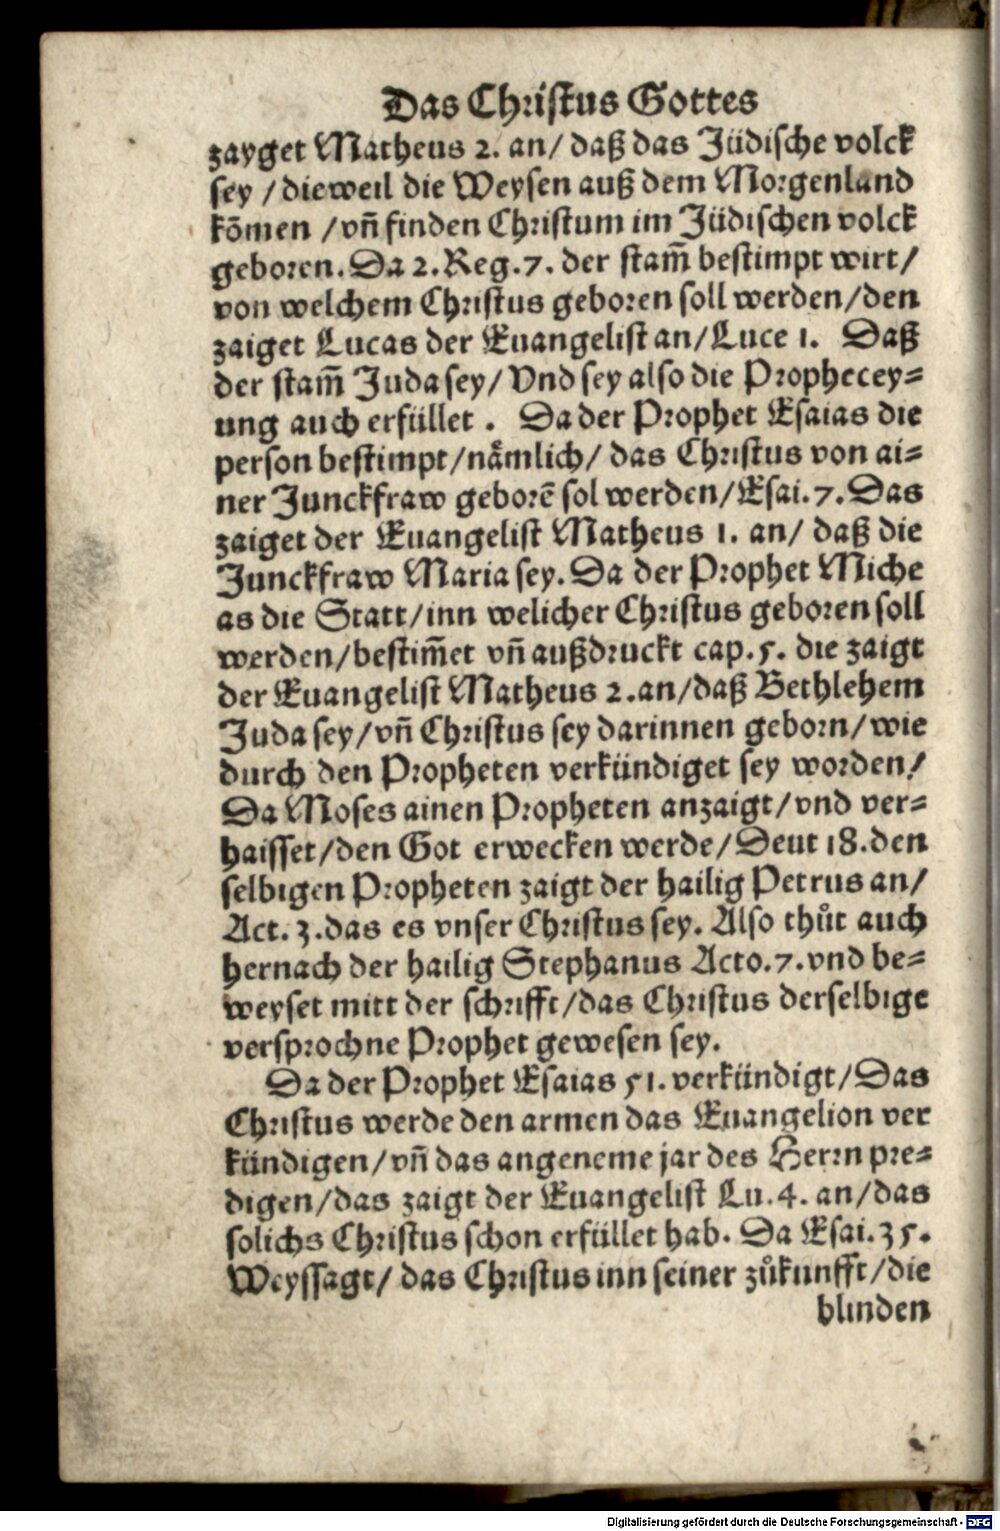 Das Christus Gottes
zayget Matheus 2. an/ daß das Jüdische volck
sey / dieweil die Weysen auß dem Morgenland
kõmen /vñ finden Christum im Jüdischen volck
geboren. Da 2. Reg. 7. der stam̃ bestimpt wirt/
von welchem Christus geboren soll werden/den
zaiget Lucas der Euangelist an/Luce 1. Daß
der stam̃ Juda sey/ Vnd sey also die Prophecey=
ung auch erfüllet . Da der Prophet Esaias die
person bestimpt/nämlich/ das Christus von ai=
ner Junckfraw geborẽ sol werden/Esai. 7. Das
zaiget der Euangelist Matheus 1. an/ daß die
Junckfraw Maria sey. Da der Prophet Miche
as die Statt/inn welicher Christus geboren soll
werden/bestim̃et vñ außdruckt cap. 5. die zaigt
der Euangelist Matheus 2. an/daß Bethlehem
Juda sey/vñ Christus sey darinnen geborn/wie
durch den Propheten verkündiget sey worden/
Da Moses ainen Propheten anzaigt/vnd ver=
haisset/den Got erwecken werde/Deut 18. den
selbigen Propheten zaigt der hailig Petrus an/
Act. 3. das es vnser Christus sey. Also thůt auch
hernach der hailig Stephanus Acto. 7. vnd be=
weyset mitt der schrifft/das Christus derselbige
versprochne Prophet gewesen sey.
Da der Prophet Esaias 51. verkündigt/Das
Christus werde den armen das Euangelion ver
kündigen/vñ das angeneme jar des Herrn pre=
digen/das zaigt der Euangelist Lu. 4. an/das
solichs Christus schon erfüllet hab. Da Esai. 35.
Weyssagt/ das Christus inn seiner zůkunfft/die
blinden
Digitalisierung gefördert durch die Deutsche Forschungsgemeinschaft - DFG